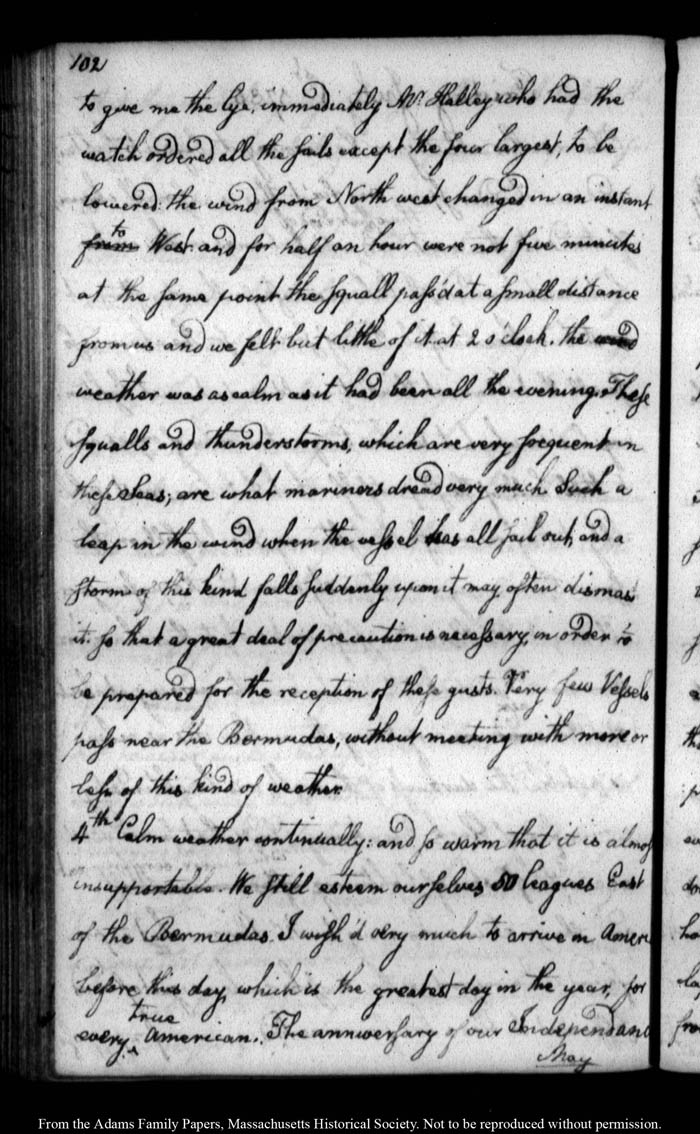 102
to give me the lye, immediately Mr. Halley who had the
watch ordered all the sails except the four largest, to be
lowered: the wind from North west changed in an instant
to
from West and for half an hour were not five minutes
at the same point the squall pass'd at a small distance
from us and we felt but little of it at 2 o'clock. the wind
weather was as calm as it had been all the evening. These
squalls and thunderstorms, which are very frequent in
these Seas; are what mariners dread very much Such a
leap in the wind when the vessel has all sail out, and a
storm of this kind falls suddenly upon it may often dismast
it. so that a great deal of precaution is necessary, in order to
be prepared for the reception of these gusts. Very few Vessels
pass near the Bermudas, without meeting with more or
less of this kind of weather.
4th Calm weather continually: and so warm that it is almost
insupportable. We still esteem ourselves 50 leagues East
of the Bermudas. I wish'd very much to arrive in Ameri
before this day, which is the greatest day in the year, for
true
every ‸ American. The anniversary of our Independance
May
From the Adams Family Papers, Massachusetts Historical Society. Not to be reproduced without permission.